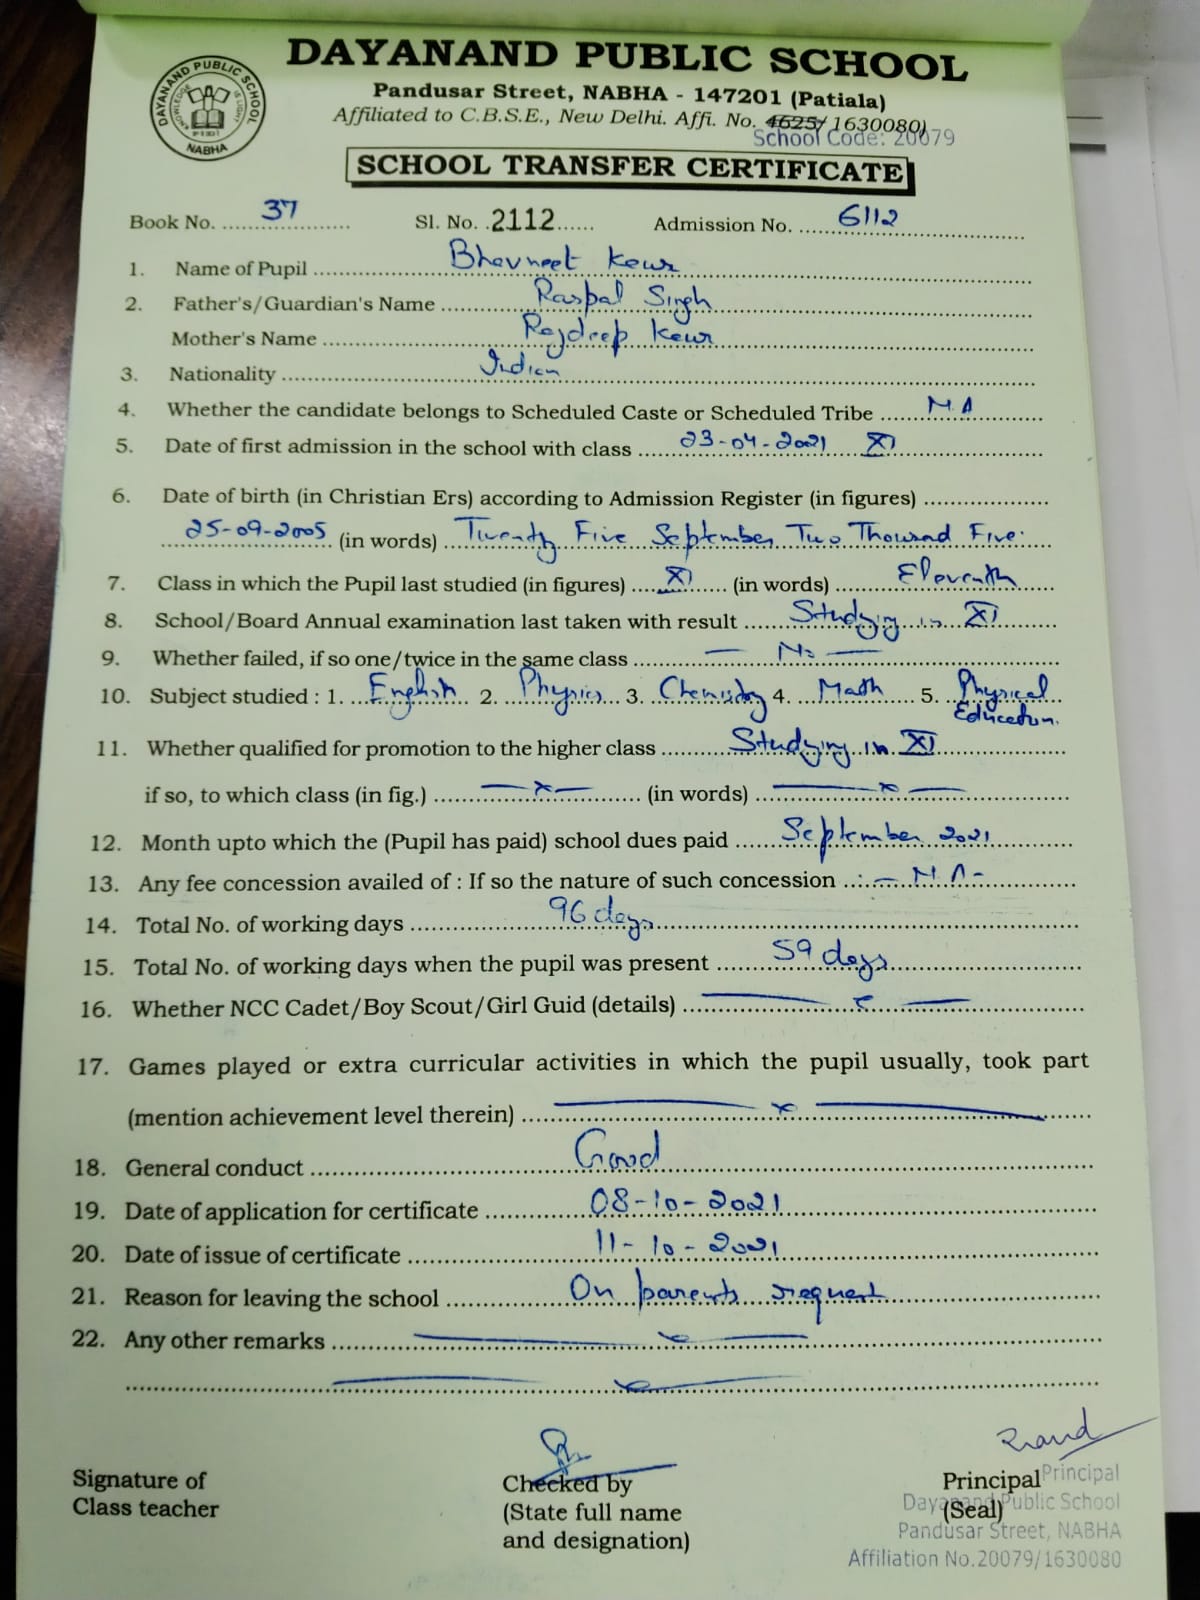 DAYANAND PUBLIC SCHOOL
Pandusar Street, NABHA - 147201 (Patiala)
Affiliated to C.B.S.E., New Delhi. Affi. No. 4625/ 1630080)
School Code: 20079
DAYANAND PUBLIC SCHOOL
NABHA
SCHOOL TRANSFER CERTIFICATE
Book No. 37 Sl. No. 2112 Admission No. 6112
1. Name of Pupil Bhavneet Kaur
2. Father's/Guardian's Name Raspal Singh
Mother's Name Rajdeep Kaur
3. Nationality Indian
4. Whether the candidate belongs to Scheduled Caste or Scheduled Tribe N.A
5. Date of first admission in the school with class 23-04-2021 XI
6. Date of birth (in Christian Ers) according to Admission Register (in figures)
25-09-2005 (in words) Twenty Five September Two Thousand Five.
7. Class in which the Pupil last studied (in figures) XI (in words) Eleventh
8. School/Board Annual examination last taken with result Studying in XI
9. Whether failed, if so one/twice in the same class — No —
10. Subject studied : 1. English 2. Physics 3. Chemistry 4. Math 5. Physical
Education.
11. Whether qualified for promotion to the higher class Studying in XI
if so, to which class (in fig.) —x— (in words) —x—
12. Month upto which the (Pupil has paid) school dues paid September 2021
13. Any fee concession availed of : If so the nature of such concession - N.A-
14. Total No. of working days 96 days
15. Total No. of working days when the pupil was present 59 days
16. Whether NCC Cadet/Boy Scout/Girl Guid (details) —x—
17. Games played or extra curricular activities in which the pupil usually, took part
(mention achievement level therein) —x—
18. General conduct Good
19. Date of application for certificate 08-10-2021
20. Date of issue of certificate 11-10-2021
21. Reason for leaving the school On parents request
22. Any other remarks —x—
—x—
Signature of
Class teacher
Checked by
(State full name
and designation)
Principal
(Seal)
Principal
Dayanand Public School
Pandusar Street, NABHA
Affiliation No.20079/1630080